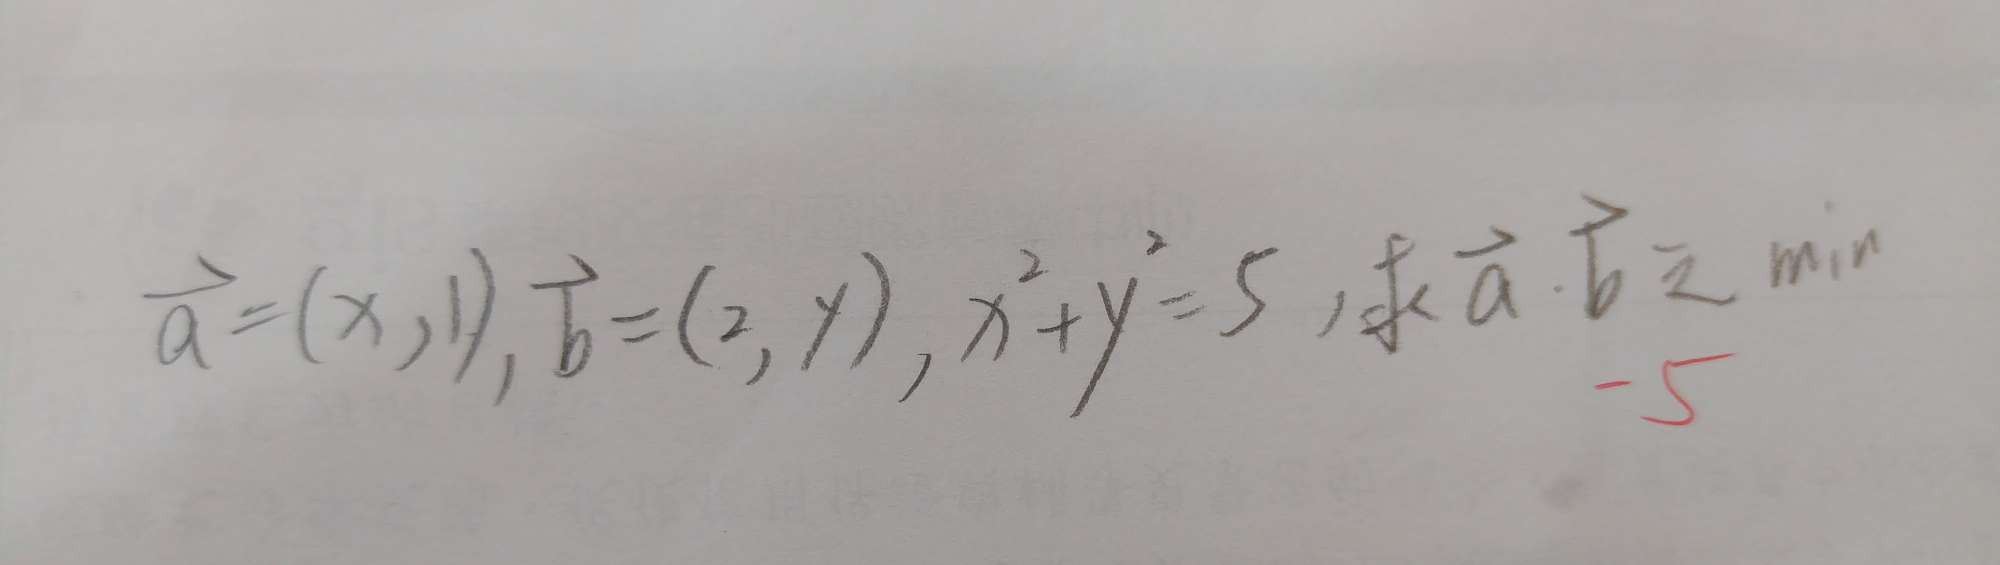 a⃗=(x,1), b⃗=(2,y), x²+y²=5,求a⃗·b⃗之min
-5